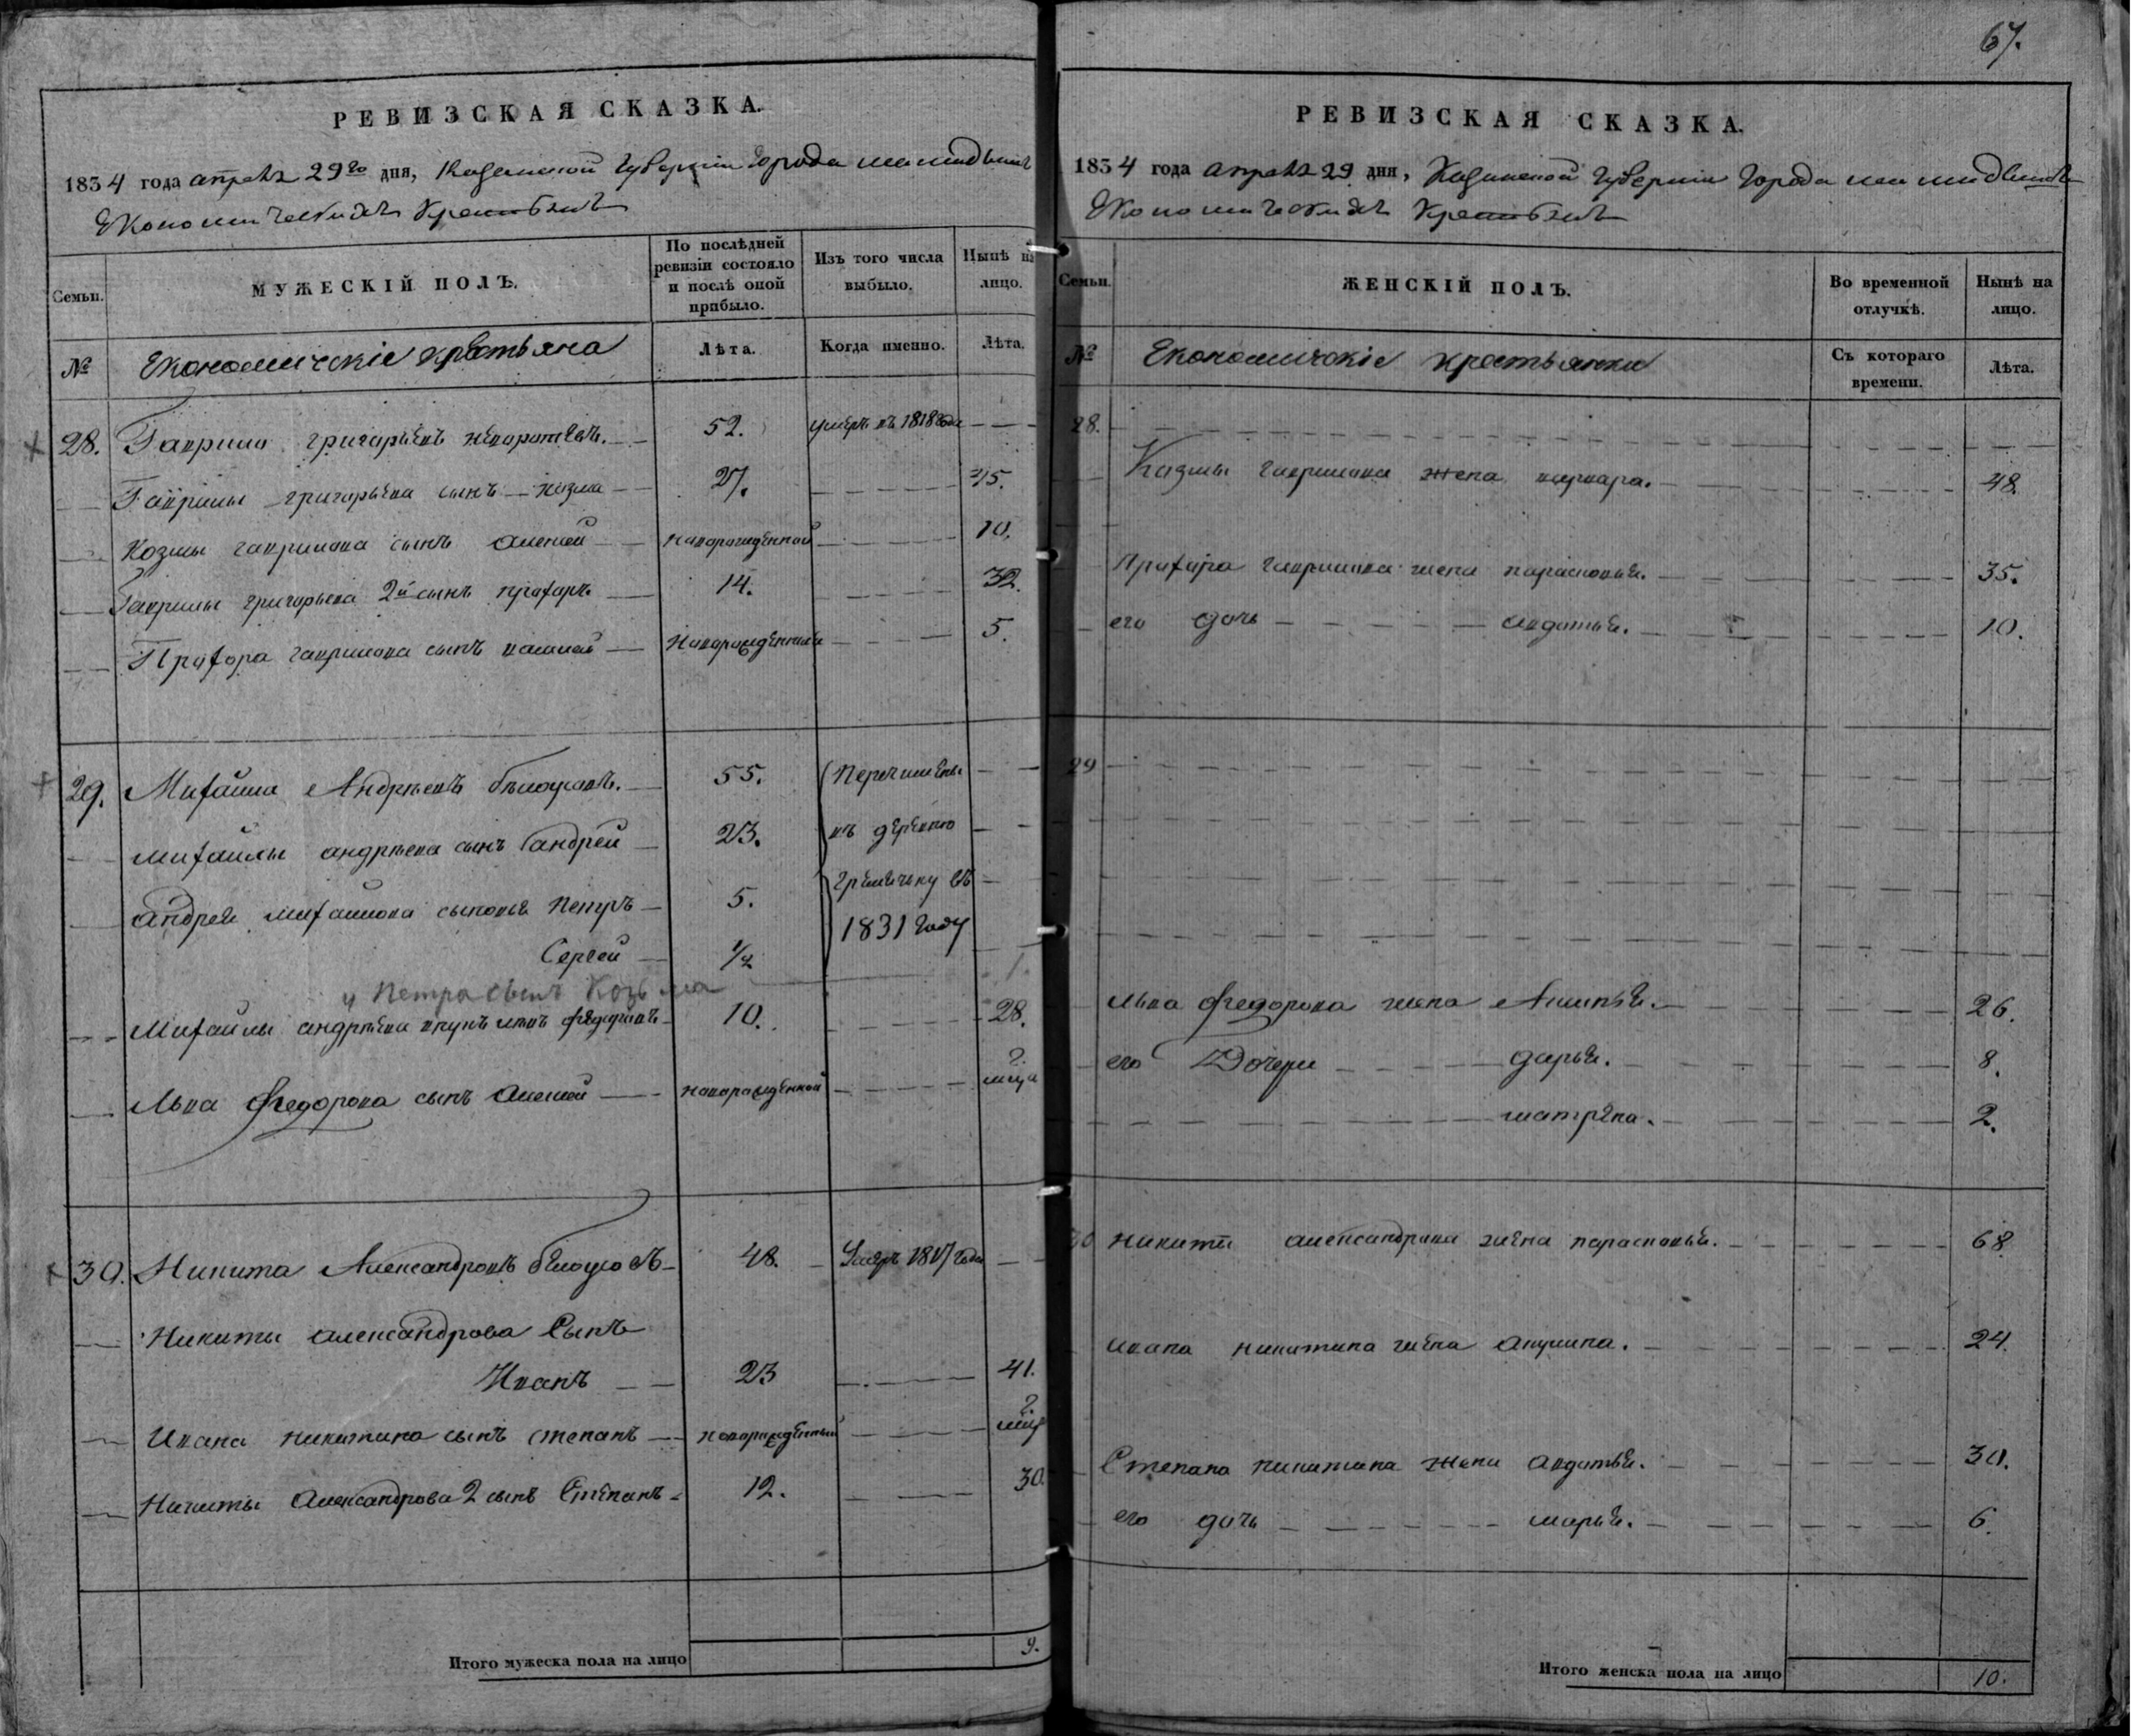 РЕВИЗСКАЯ СКАЗКА.
1834 года апреля 29го дня, Казанской Губернии Города мамадыша
Економическихъ Крестьянъ
Семьи.
МУЖЕСКІЙ ПОЛЪ.
По послѣдней ревизіи состояло и послѣ оной прибыло.
Изъ того числа выбыло.
Нынѣ на лицо.
№
Економическіе крестьяна
Лѣта.
Когда именно.
Лѣта.
28. Гаврила григорьевъ 52. умеръ въ 1818 года
Гаврилы григорьева сынъ козма 27. 45.
Козмы гаврилова сынъ алексей новорожденной 10.
Гаврилы григорьева 2й сынъ прахоръ 14. 32.
Прахора гаврилова сынъ новорожденной 5.
29. Михайла Андреевъ бѣлоусовъ. 55. Перечислены
михайлы андреева сынъ андрей 23. въ деревню
андрея михайлова сыновья петръ 5. въ
Сергей 1/2 1831 году
у Петра сынъ Козьма 1.
Михайлы андреева внукъ левъ федоровъ 10. 28.
Льва федорова сынъ алексей новорожденной 2. мца
30. Никита Александровъ бѣлоусовъ 48. Умеръ 1817 года
Никиты александрова Сынъ
Иванъ 23 41.
Ивана никитина сынъ степанъ новорожденный 2. мца
Никиты Александрова 2 сынъ Степанъ 12. 30.
Итого мужеска пола на лицо 9.
67.
РЕВИЗСКАЯ СКАЗКА.
1834 года апреля 29 дня, Казанской Губернии Города мамадыша
Економическихъ Крестьянъ
Семьи.
ЖЕНСКІЙ ПОЛЪ.
Во временной отлучкѣ.
Нынѣ на лицо.
№
Економическіе крестьянки
Съ котораго времени.
Лѣта.
28.
Козмы гаврилова жена варвара. 48.
Прахора гаврилова жена парасковья. 35.
его дочь авдотья. 10.
29
льва федорова жена 26.
его Дочери дарья. 8.
матрена. 2.
30 никиты александрова жена парасковья. 68
ивана никитина жена акулина. 24.
Степана никитина жена авдотья. 30.
его дочь марья. 6.
Итого женска пола на лицо 10.